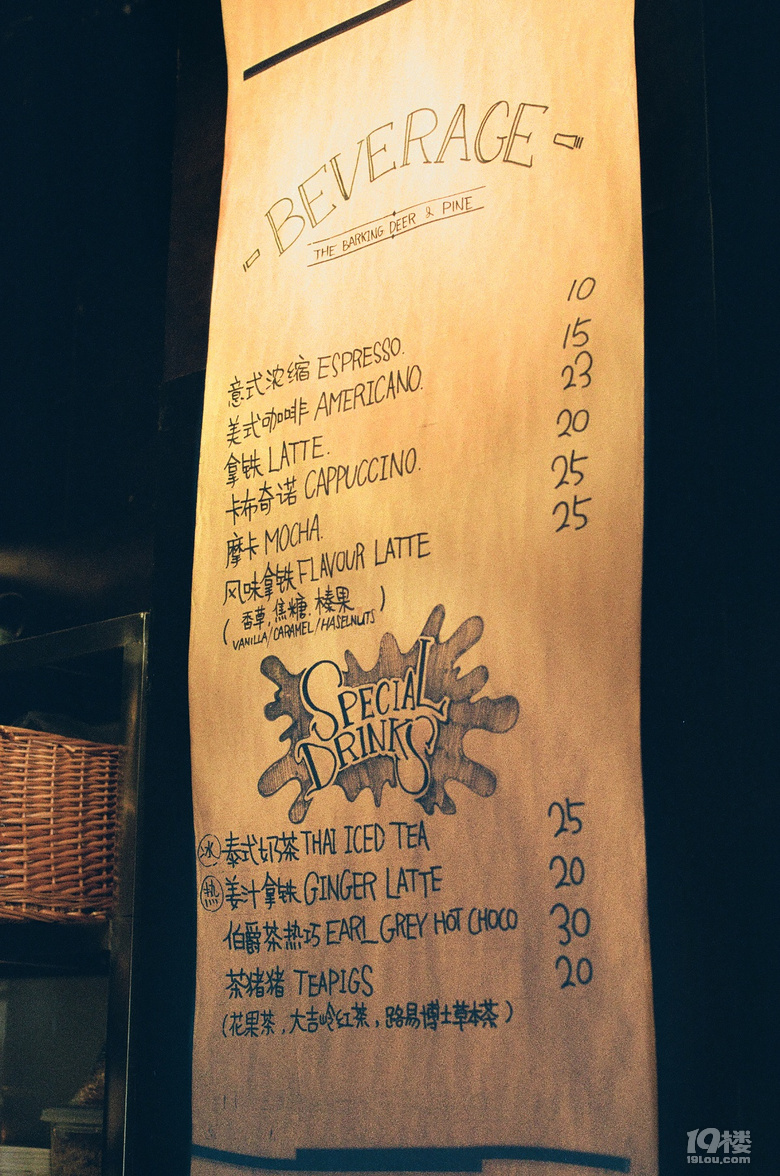 BEVERAGE
THE BARKING DEER & PINE
意式浓缩 ESPRESSO. 10
美式咖啡 AMERICANO. 15
拿铁 LATTE. 23
卡布奇诺 CAPPUCCINO. 20
摩卡 MOCHA. 25
风味拿铁 FLAVOUR LATTE 25
(香草.焦糖.榛果)
VANILLA/CARAMEL/HASELNUTS
SPECIAL
DRINKS
冰 泰式奶茶 THAI ICED TEA 25
热 姜汁拿铁 GINGER LATTE 20
伯爵茶热巧 EARL GREY HOT CHOCO 30
茶猪猪 TEAPIGS 20
(花果茶,大吉岭红茶,路易博士草本茶)
19楼
19lou.com